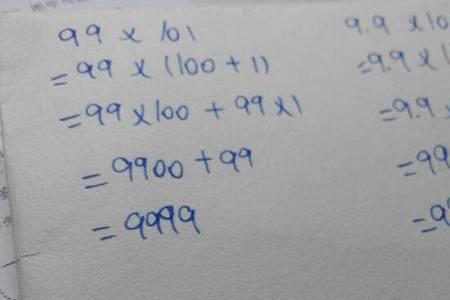 99 × 101
= 99 × (100 + 1)
= 99 × 100 + 99 × 1
= 9900 + 99
= 9999
9.9 × 10
= 9.9 ×
= 9.9
= 99
= 9